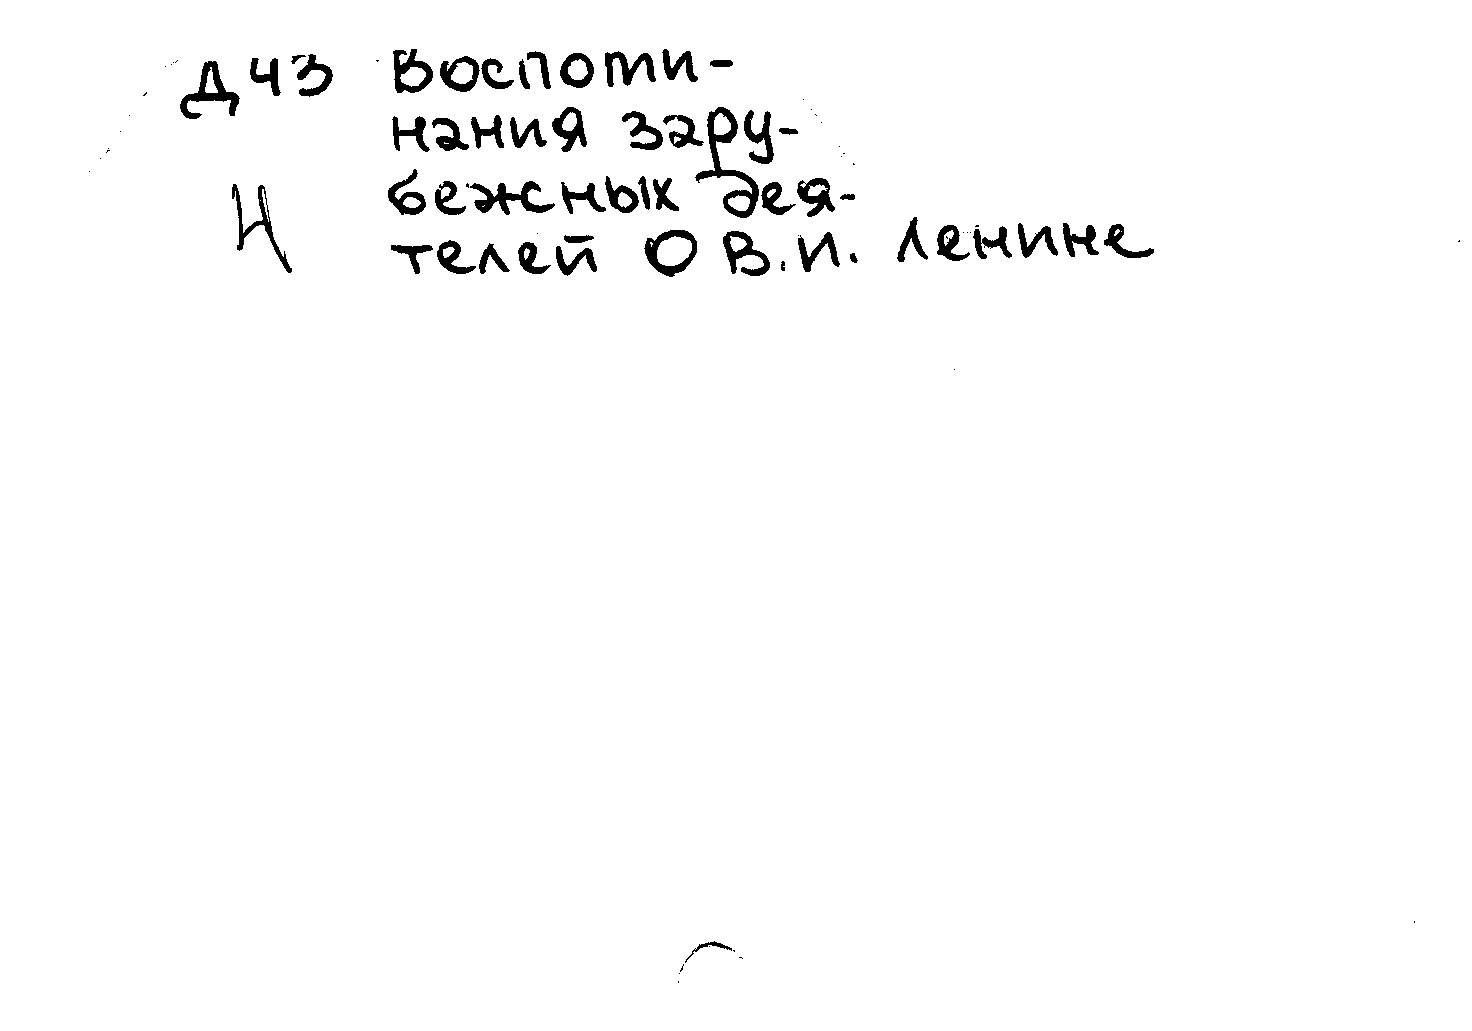 Д43 Воспоми-
нания зару-
Н бежных дея-
телей О В.И. Ленине